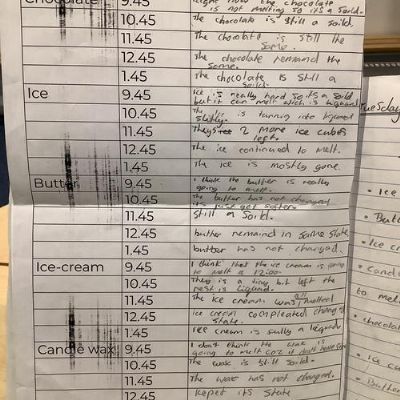 Chocolate 9.45 Right now the chocolate
is not melting so its a Soild.
10.45 The chocolate is still a soild.
11.45 The choclate is still the
Same.
12.45 The chocolate remaind the
same.
1.45 The chocolate IS Still a
Soild.
Ice 9.45 Ice is really hard so its a soild
but it can melt which is liquied
10.45 The ice is turning into liquied
slitley.
11.45 2 more ice cubes
left.
12.45 The ice continued to melt.
1.45 The ice is mostly gone.
Butter 9.45 I think the butter is really
going to melt.
10.45 The butter has not changed
it's just got softer
11.45 Still a Soild.
12.45 butter remained in same state
1.45 buttter has not changed.
Ice-cream 9.45 I think that the ice cream is going
to melt a 12:00
10.45 There is a tiny bit left the
rest is liquied.
11.45 The ice cream was all melted
12.45 ice cream compleated change
state.
1.45 ice cream is a
Candle wax 9.45 I dont think the wax is
going to melt coz it dont have
10.45 The wax is still soild.
11.45 The wax has not changed.
12.45 kepet its State
Tuesday
• Ice
• Butt
• Ice cr
• cand
to mel
• chocolat
• ice cu
• Butter